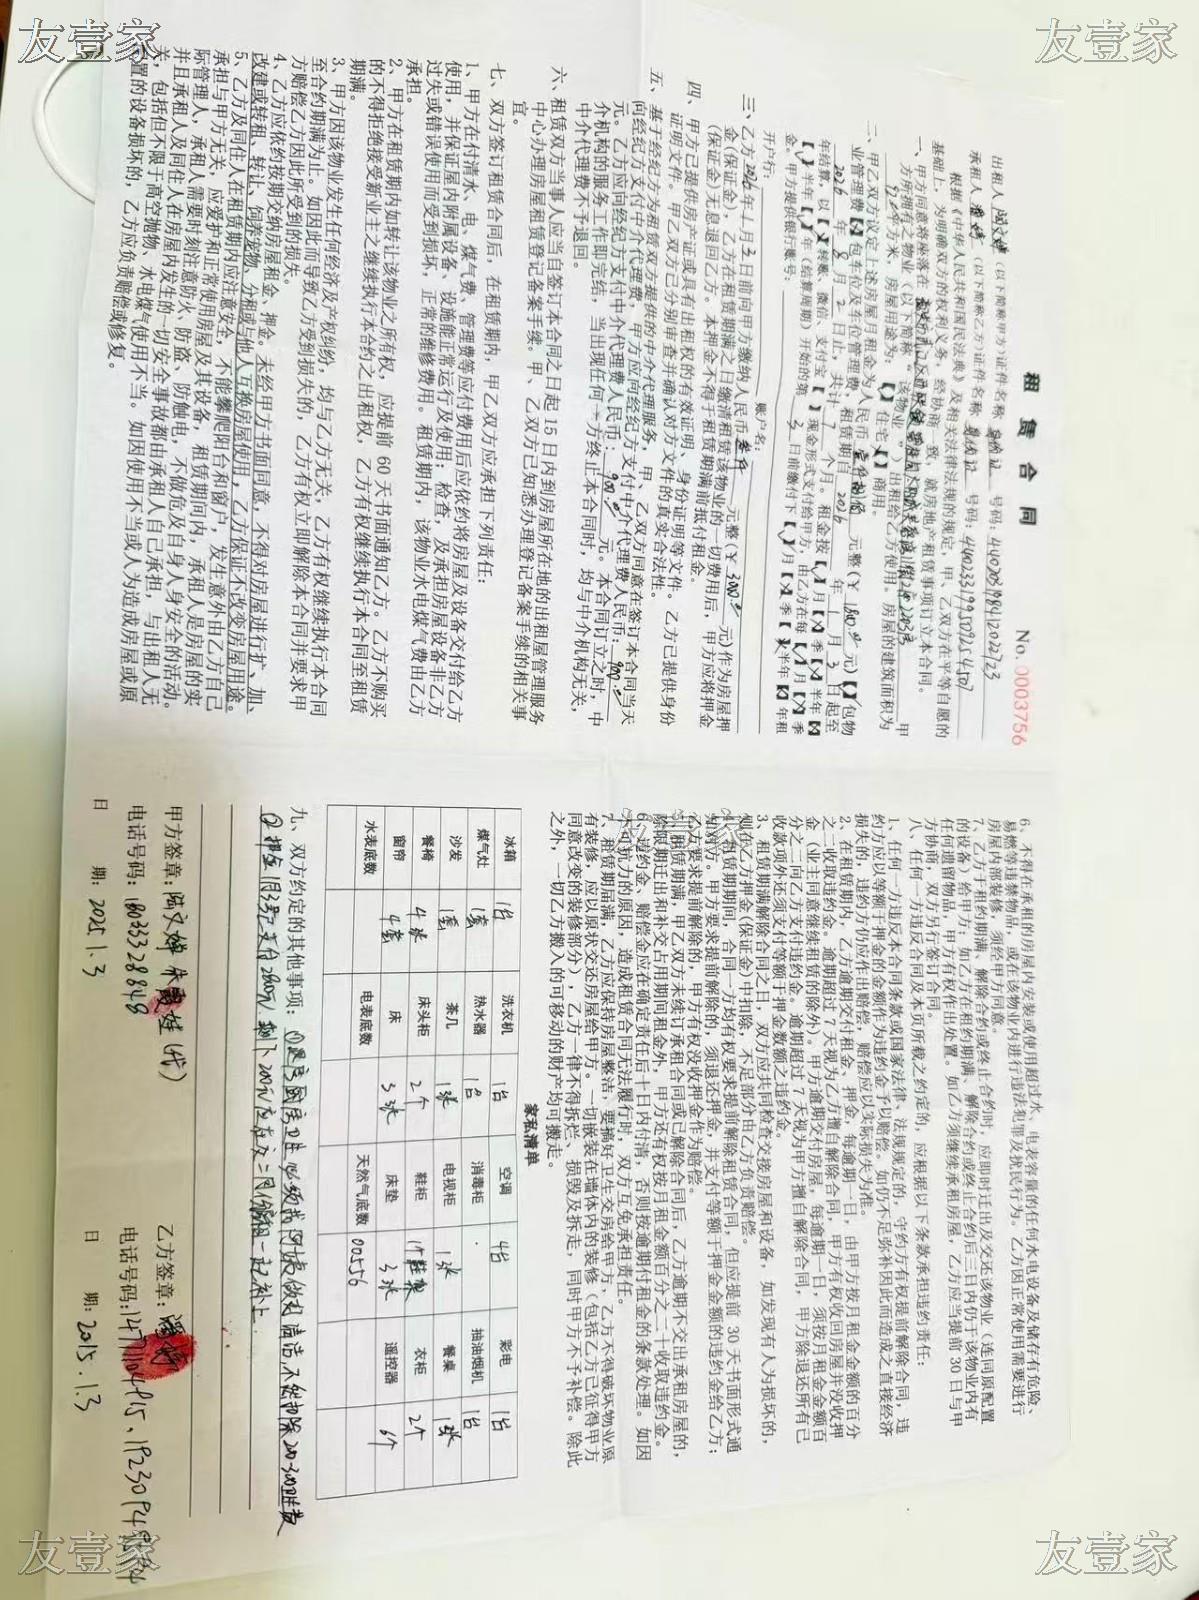 友壹家
友壹家
租 赁 合 同
No. 0003756
出租人 (以下简称甲方)证件名称 身份证 号码:
承租人 (以下简称乙方)证件名称 身份证 号码:
根据《中华人民共和国民法典》及相关法律法规的规定，甲、乙双方在平等自愿的
基础上，为明确双方的权利义务，经协商一致，就房地产租赁事项订立本合同。
一、甲方同意将座落在
方所拥有之物业（以下简称"该物业"）出租给乙方使用。房屋的建筑面积为
平方米，房屋用途为：【√】住宅【 】商用。
二、甲乙双方议定上述房屋月租金为人民币 元整(￥ 元)【√】包物
业管理费【×】包车位及车位管理费，租赁期自 2026 年 1 月 3 日起至
2026 年 8 月 2 日止，共计 7 个月。租金按【√】月【×】季【×】半年【×】
年结算，以【×】转账、微信、支付宝【 】现金形式支付给甲方，由乙方在每【√】月【×】季
【 】半年【 】年（结算周期）开始的第 3 日前缴付下【√】月【×】季【×】半年【×】年租
金。甲方提供银行账号：
开户行： 账户名：
三、乙方 2026 年 1 月 3 日前向甲方缴纳人民币 叁仟 元整(￥ 3000.00 元)作为房屋押
金(保证金)，乙方在租赁期满之日缴清租赁该物业的一切费用后，甲方应将押金
(保证金)无息退回乙方。本押金不得于租赁期满前抵付租金。
四、甲方已提供房产证或具有出租权的有效证明、身份证明等文件。乙方已提供身份
证明文件。甲乙双方已分别审查并确认对方文件的真实合法性。
五、基于经纪方为租赁双方提供的中介代理服务，甲、乙双方同意在签订本合同当天
向经纪方支付中介代理费，甲方应向经纪方支付中介代理费人民币：900.00
元。乙方应向经纪方支付中介代理费人民币：900.00 元。本合同订立之时，中
介机构的服务工作即完结，当出现任何一方终止本合同时，均与中介机构无关，
中介代理费不予退回。
六、租赁双方当事人应当自签订本合同之日起 15 日内到房屋所在地的出租屋管理服务
中心办理房屋租赁登记备案手续。甲、乙双方已知悉办理登记备案手续的相关事
宜。
七、双方签订租赁合同后，在租赁期内，甲乙双方应承担下列责任：
1、甲方在付清水、电、煤气费、管理费等应付费用后应依约将房屋及设备交付给乙方
使用，并保证屋内附属设备、设施能正常运行及使用；检查，及承担房屋设备非乙方
过失或错误使用而受到损坏，正常的维修费用。租赁期内，该物业水电煤气费由乙方
承担。
2、甲方在租赁期内如转让该物业之所有权，应提前 60 天书面通知乙方。乙方不购买
的不得拒绝接受新业主之继续执行本合约之出租权，乙方有权继续执行本合同至租赁
期满。
3、甲方因该物业发生任何经济及产权纠纷，均与乙方无关，乙方有权继续执行本合同
至合约期满为止。如因此而导致乙方受到损失的，乙方有权立即解除本合同并要求甲
方赔偿乙方因此所受到的损失。
4、乙方应依约按期交纳房屋租金、押金。未经甲方书面同意，不得对房屋进行扩、加、
改建或转租、转让、饲养宠物、分租或与他人互换房屋使用，乙方保证不改变房屋用途。
5、乙方及同住人在租赁期内应注意安全，不能攀爬阳台和窗户，发生意外由乙方自己
承担与甲方无关，应爱护和正常使用房屋及其设备，租赁期间内，承租人是房屋的实
际管理人，承租人需要时刻注意防火、防盗、防触电，不做危及自身人身安全的活动。
并且承租人及同住人在房屋内发生的一切安全事故都由承租人自己承担，与出租人无
关，包括但不限于高空抛物、水电煤气使用不当。如因使用不当或人为造成房屋或原
置的设备损坏的，乙方应负责赔偿或修复。
6、不得在承租的房屋内安装或使用超过水、电表容量的任何水电设备及储存有危险、
易燃等违禁物品，或在该物业内进行违法犯罪及扰民行为。乙方因正常使用需要进行
房屋内部装修，须经甲方同意。
7、乙方于租约期满、解除合约或终止合约时，应即时迁出及交还该物业（连同原配置
的设备）给甲方；如乙方在租约期满、解除合约或终止合约后三日内仍于该物业内有
任何遗留物品，甲方有权作出处置。如乙方须继续承租房屋，乙方应当提前 30 日与甲
方协商，双方另行签订合同。
八、任何一方违反合同及本页所载之约定的，应根据以下条款承担违约责任：
1、任何一方违反本合同条款或国家法律、法规规定的，守约方有权提前解除合同，违
约方应以等额于押金的金额作为违约金予以赔偿。如仍不足弥补因此而造成之直接经济
损失的，违约方仍应作出赔偿，赔偿应以实际损失为准。
2、在租赁期内，乙方逾期交付租金、押金，每逾期一日，由甲方按月租金金额的百分
之二收取违约金，逾期超过 7 天视为乙方擅自解除合同，甲方有权收回房屋并没收押
金（业主同意继续租赁的除外）。甲方逾期交付房屋，每逾期一日，须按月租金金额百
分之二向乙方支付违约金。逾期超过 7 天视为甲方擅自解除合同，甲方除退还所有已
收款项外还须支付等额于押金数额之违约金。
3、租赁期满解除合同之日，双方应共同检查交接房屋和设备，如发现有人为损坏的，
则在乙方押金（保证金）中扣除，不足部分由乙方负责赔偿。
4、租赁期期间，合同一方均有权要求提前解除租赁合同，但应提前 30 天书面形式通
知对方。甲方要求提前解除的，须退还押金，并支付等额于押金金额的违约金给乙方；
乙方要求提前解除的，甲方有权没收押金作为赔偿。
5、租赁期满，甲乙双方未续订承租合同或已解除合同后，乙方逾期不交出承租房屋的，
除限期迁出和补交占用期间租金外，甲方还有权按月租金额百分之二十收取违约金。
6、违约金、赔偿金应在确定责任后十日内付清，否则按逾期付租金的条款处理。如因
不可抗力的原因，造成租赁合同无法履行时，双方互免承担责任。
7、租赁期届满，乙方应保持房屋整洁，要搞好卫生交房给甲方，乙方不得破坏物业原
有装修，应以原状交还房屋给甲方。一切嵌装在墙体内的装修（包括乙方已征得甲方
同意改变的装修部分），乙方一律不得拆烂、损毁及拆走，同时甲方不予补偿。除此
之外，一切乙方搬入的可移动的财产均可搬走。
家私清单
冰箱 1台 洗衣机 1台 空调 4台 彩电 1台
煤气灶 1套 热水器 1台 消毒柜 抽油烟机 1台
沙发 1套 茶几 1张 电视柜 1张 餐桌 1张
餐椅 4张 床头柜 2个 鞋柜 1个鞋架 衣柜 2个
窗帘 4套 床 3张 床垫 3张 遥控器 6个
水表底数 电表底数 天然气底数 00556
九、双方约定的其他事项：
甲方签章： (代)
乙方签章：
电话号码：18033328848
电话号码：
日 期：2025.1.3
日 期：2015.1.3
友壹家
友壹家
友壹家